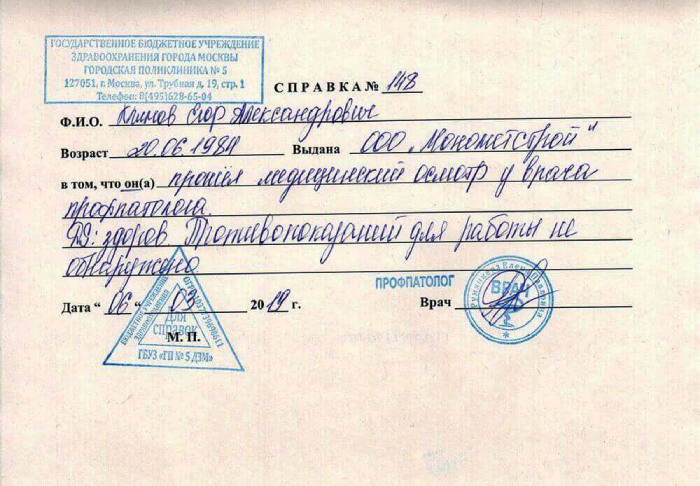 ГОСУДАРСТВЕННОЕ БЮДЖЕТНОЕ УЧРЕЖДЕНИЕ
ЗДРАВООХРАНЕНИЯ ГОРОДА МОСКВЫ
ГОРОДСКАЯ ПОЛИКЛИНИКА № 5
127051, г. Москва, ул. Трубная д. 19, стр. 1
Телефон: 8(495)628-65-04
СПРАВКА № 148
Ф.И.О. Климов Егор Александрович
Возраст 20.06.1984 Выдана ООО „Монометстрой"
в том, что он(а) прошёл медицинский осмотр у врача
профпатолога.
DS: здоров Противопоказаний для работы не
обнаружено
ПРОФПАТОЛОГ
Дата “ 06 “ 03 2019 г. Врач
ВРАЧ
ДЛЯ
СПРАВОК
М. П.
ГБУЗ «ГП № 5 ДЗМ»